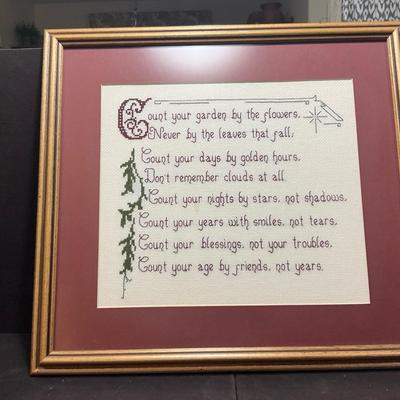 Count your garden by the flowers,
Never by the leaves that fall;
Count your days by golden hours,
Don't remember clouds at all.
Count your nights by stars, not shadows,
Count your years with smiles, not tears,
Count your blessings, not your troubles,
Count your age by friends, not years.